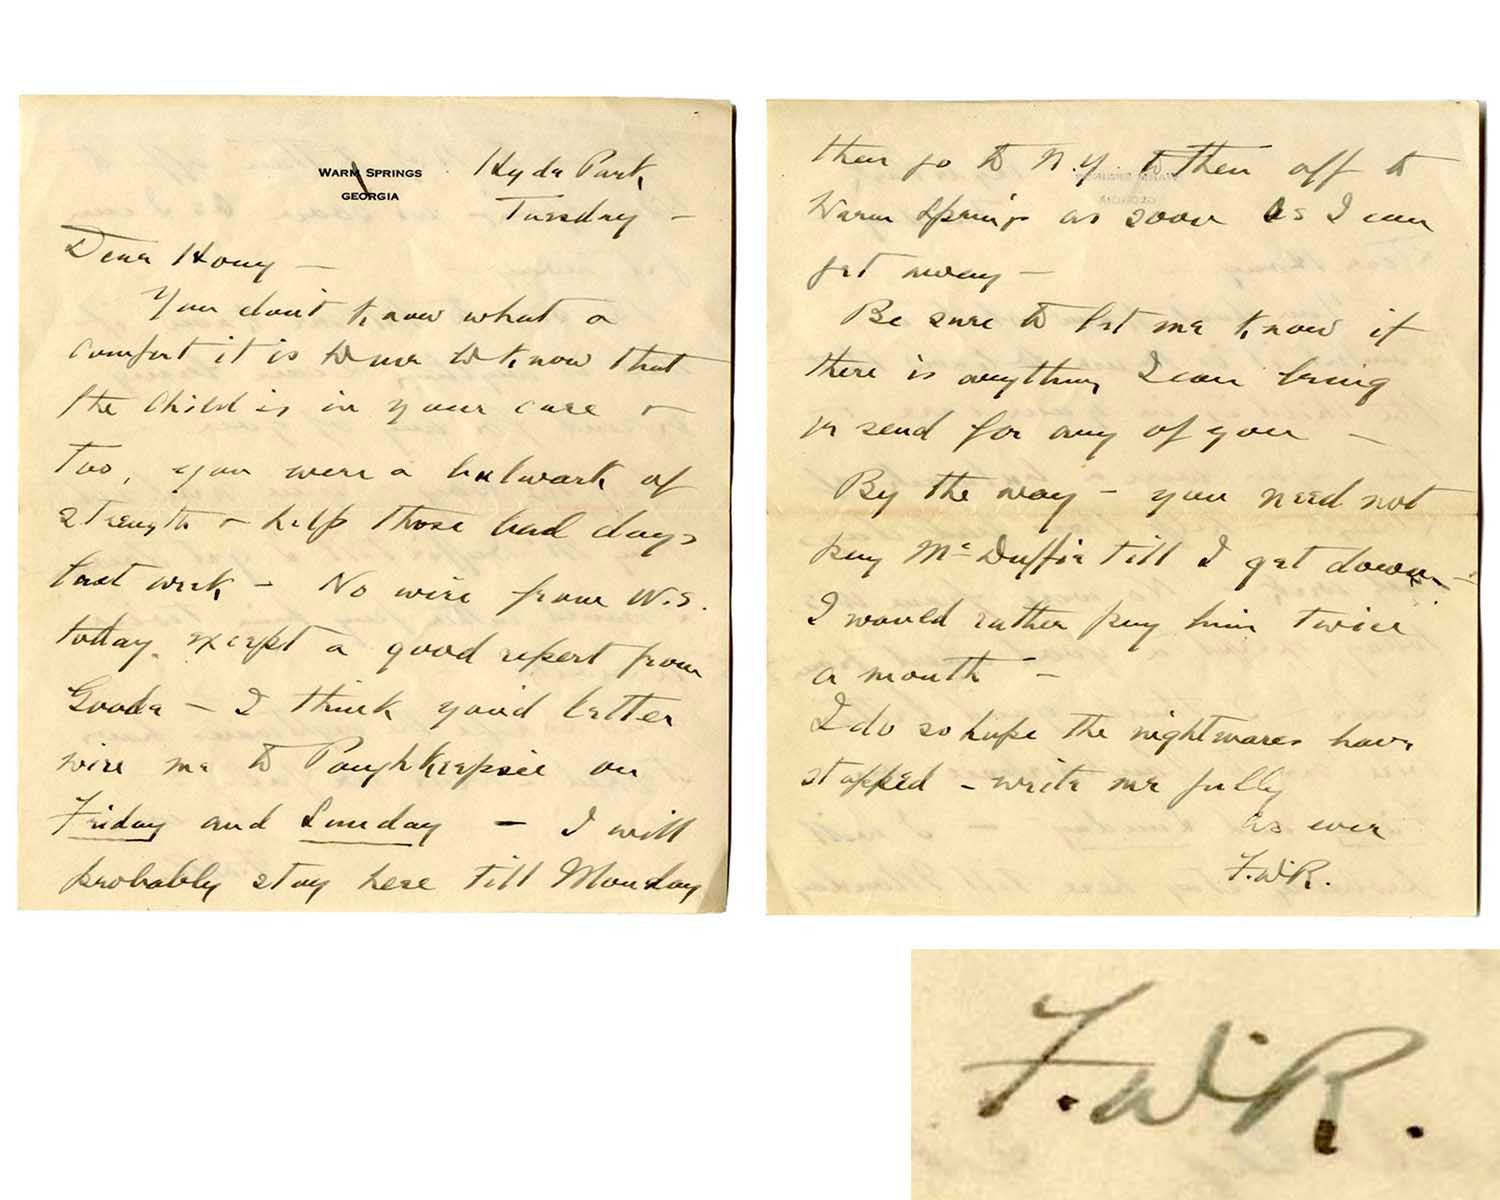 WARM SPRINGS
GEORGIA
Hyde Park
Tuesday –
Dear Hony –
You don't know what a
comfort it is to me to know that
the child is in your care &
too, you were a bulwark of
strength & help those bad days
last week – No wire from W.S.
today except a good report from
Goode – I think you'd better
wire me to Poughkeepsie on
Friday and Sunday – I will
probably stay here till Monday
then go to N.Y. & then off to
Warm Springs as soon as I can
get away –
Be sure to let me know if
there is anything I can bring
or send for any of you –
By the way – you need not
pay McDuffie till I get down –
I would rather pay him twice
a month –
I do so hope the nightmares have
stopped – write me fully
as ever
F.D.R.
F.D.R.